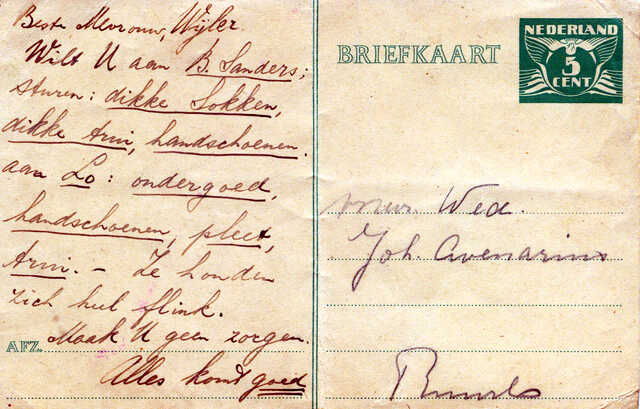 Beste Mevrouw, Wijler.
Wilt U aan B. Sanders;
sturen: dikke Sokken,
dikke Trui, handschoenen.
aan Lo: ondergoed,
handschoenen, pleet,
Trui. — Ze houden
zich heel flink.
Maak U geen zorgen.
Alles komt goed
AFZ.
BRIEFKAART
NEDERLAND
5
CENT
Mevr. Wed.
Joh. Avenarius